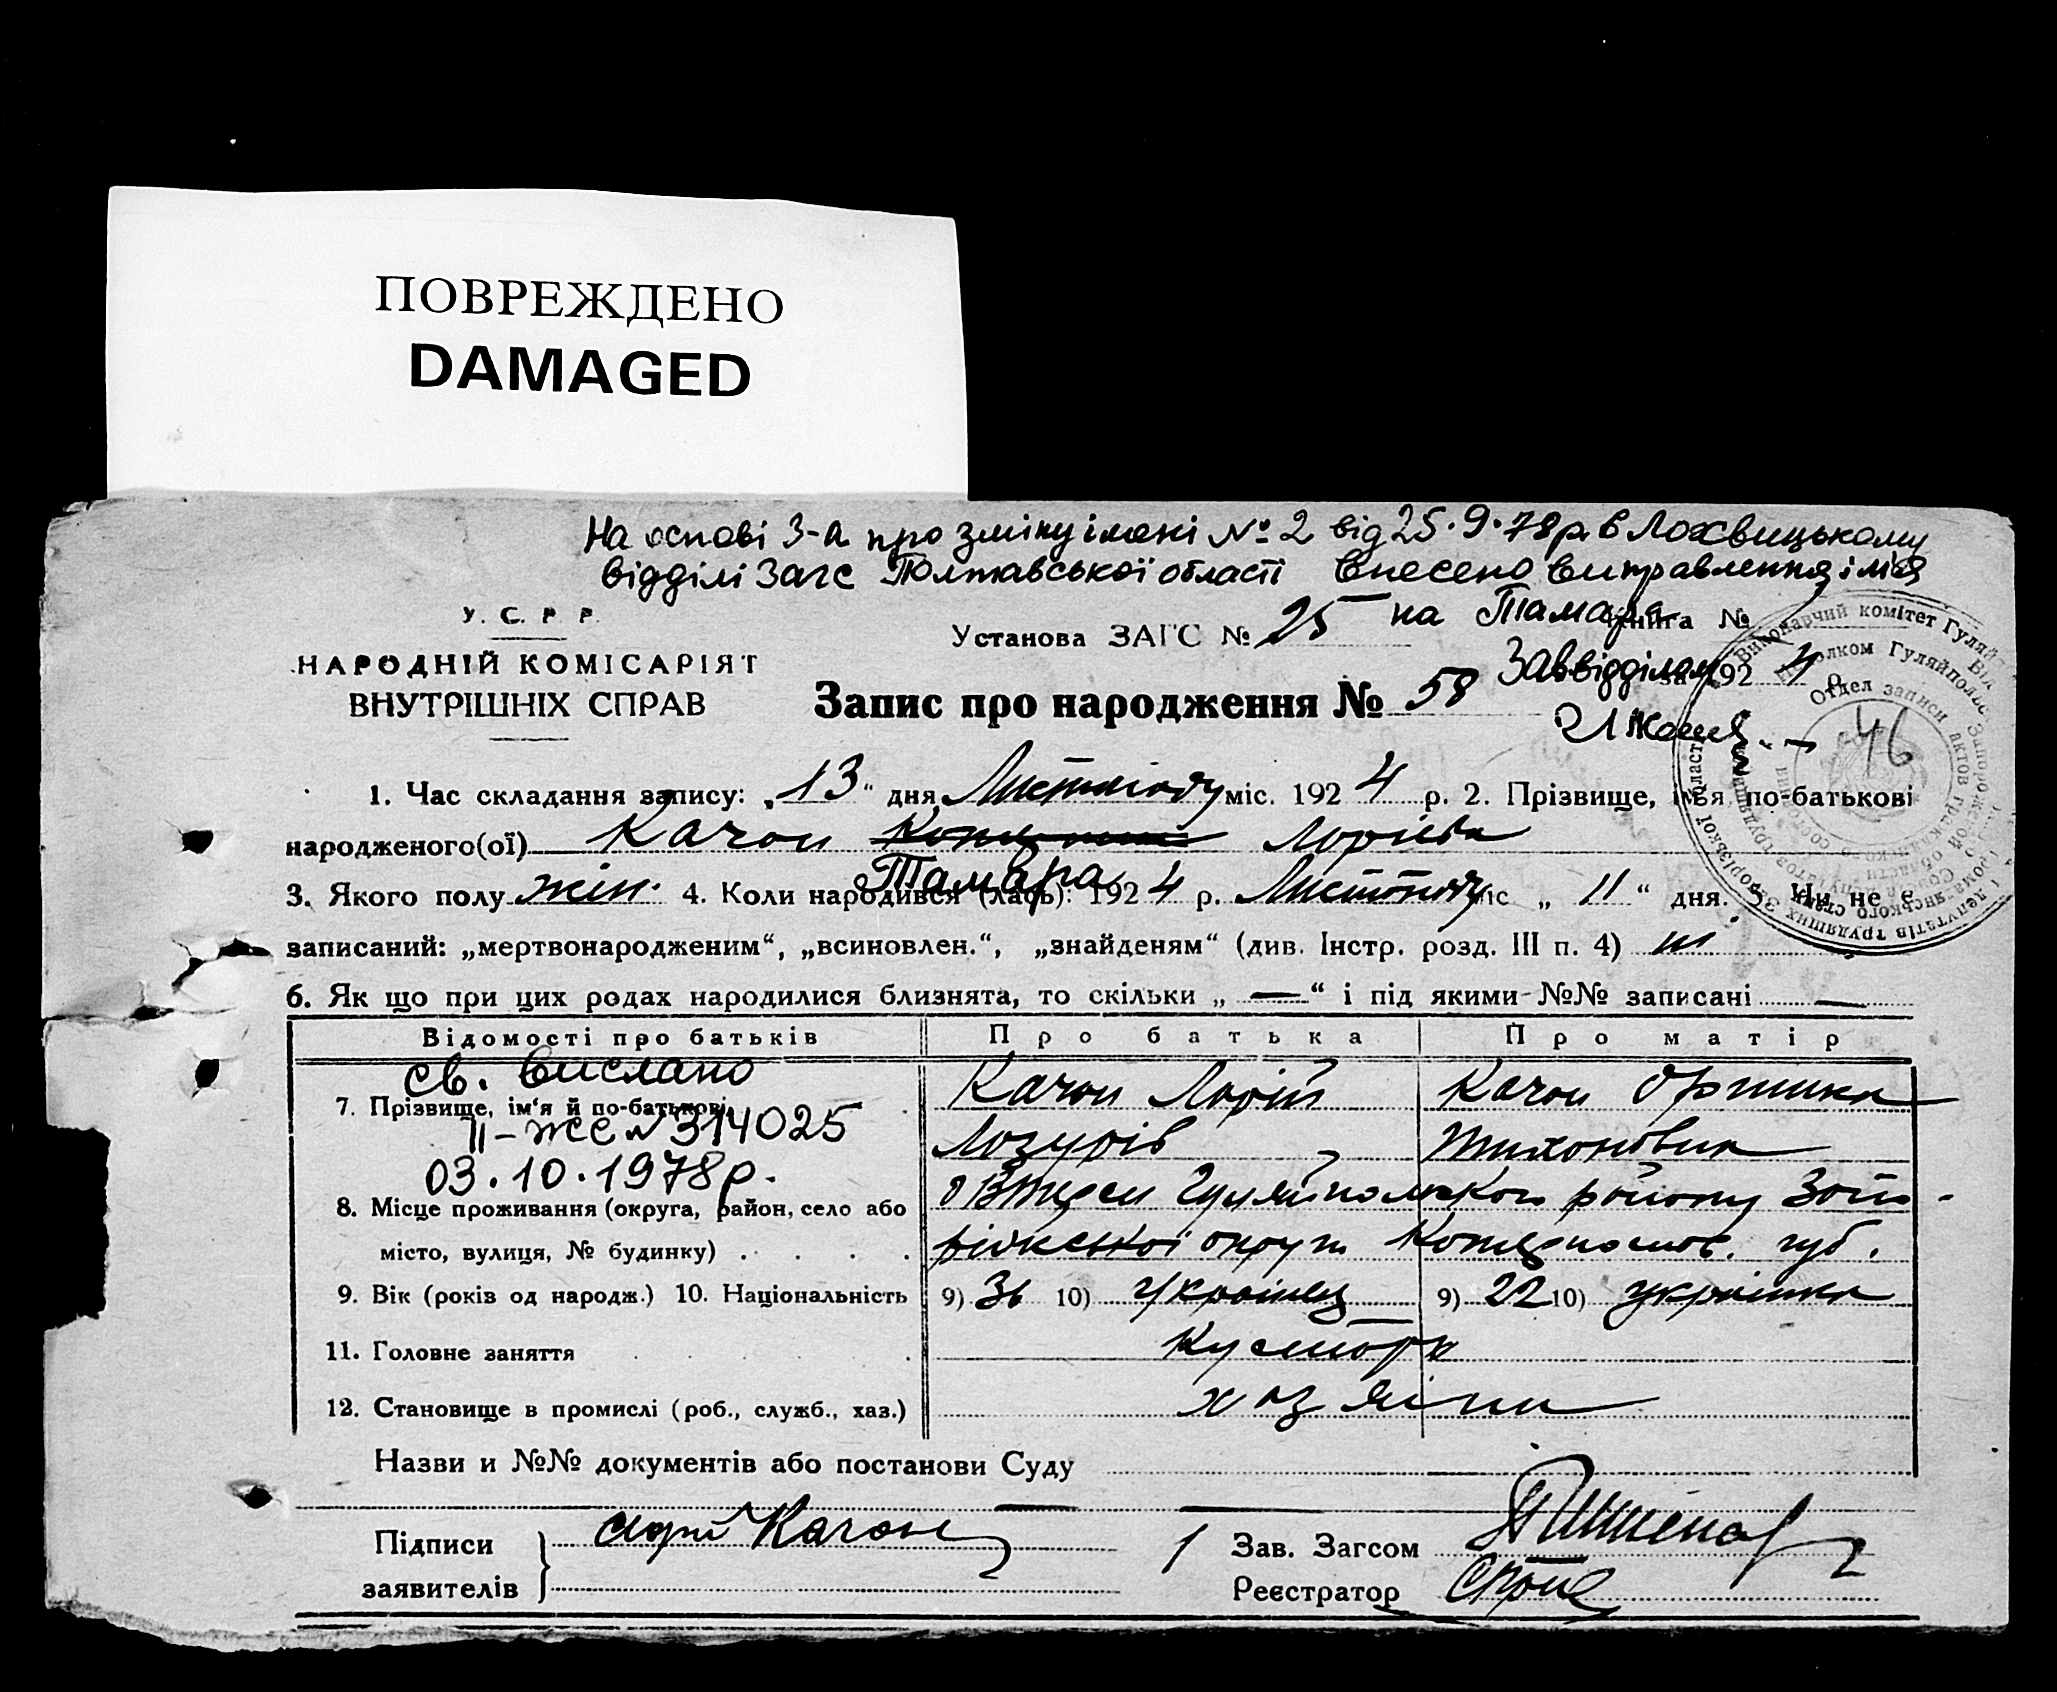 ПОВРЕЖДЕНО
DAMAGED
На основі з-а про зміну імені № 2 від 25.9.78р. в Лохвицькому
відділі Загс Полтавської області внесено виправлення ім'я
на Тамара
У. С. Р. Р.
Установа ЗАГС № 25 Книга №
НАРОДНІЙ КОМІСАРІЯТ
ВНУТРІШНІХ СПРАВ
Завідділом
за 1924 р.
Запис про народження № 58
46
1. Час складання запису: „13“ дня Листопаду міс. 1924 р. 2. Прізвище, ім'я, по-батькові
народженого(ої) Качан
Тамара
3. Якого полу жін. 4. Коли народився (лась): 1924 р. Листопаду міс „11“ дня. 5. Чи не є
записаний: „мертвонародженим“, „всиновлен.“, „знайденям“ (див. Інстр. розд. III п. 4) ні
6. Як що при цих родах народилися близнята, то скільки „—“ і під якими №№ записані —
Відомості про батьків Про батька Про матір
св. вислано
7. Прізвище, ім'я й по-батькові
II-ЖС № 314025
03.10.1978р.
Качан
Качан
Тихоновна
8. Місце проживання (округа, район, село або
місто, вулиця, № будинку)
Гуляйпольского району Запо-
ріжської округи губ.
9. Вік (років од народж.) 10. Національність 9) 36 10) Українець 9) 22 10) українка
11. Головне заняття
Кустарь
12. Становище в промислі (роб., служб., хаз.)
хазяіни
Назви и №№ документів або постанови Суду
Підписи
заявителів
Качан
Зав. Загсом
Реєстратор